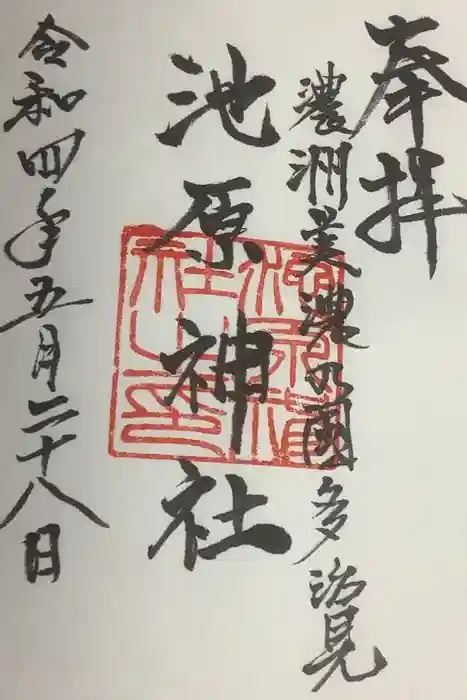 奉拝
濃洲美濃の國多治見
池原神社
令和四年五月二十八日